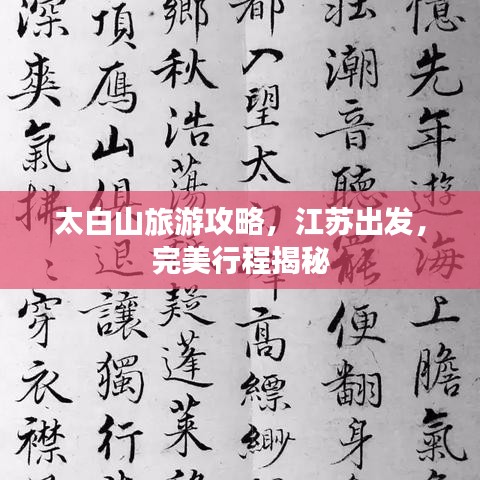 太白山旅游攻略，江苏出发，
完美行程揭秘
憶先年遊海上膽氣
壯潮音聽罷便翻身
都入望太高縹緲
鄉秋浩蕩疑蓬萊
頂雁山俱退讓獨行
深爽氣拂穿衣襟